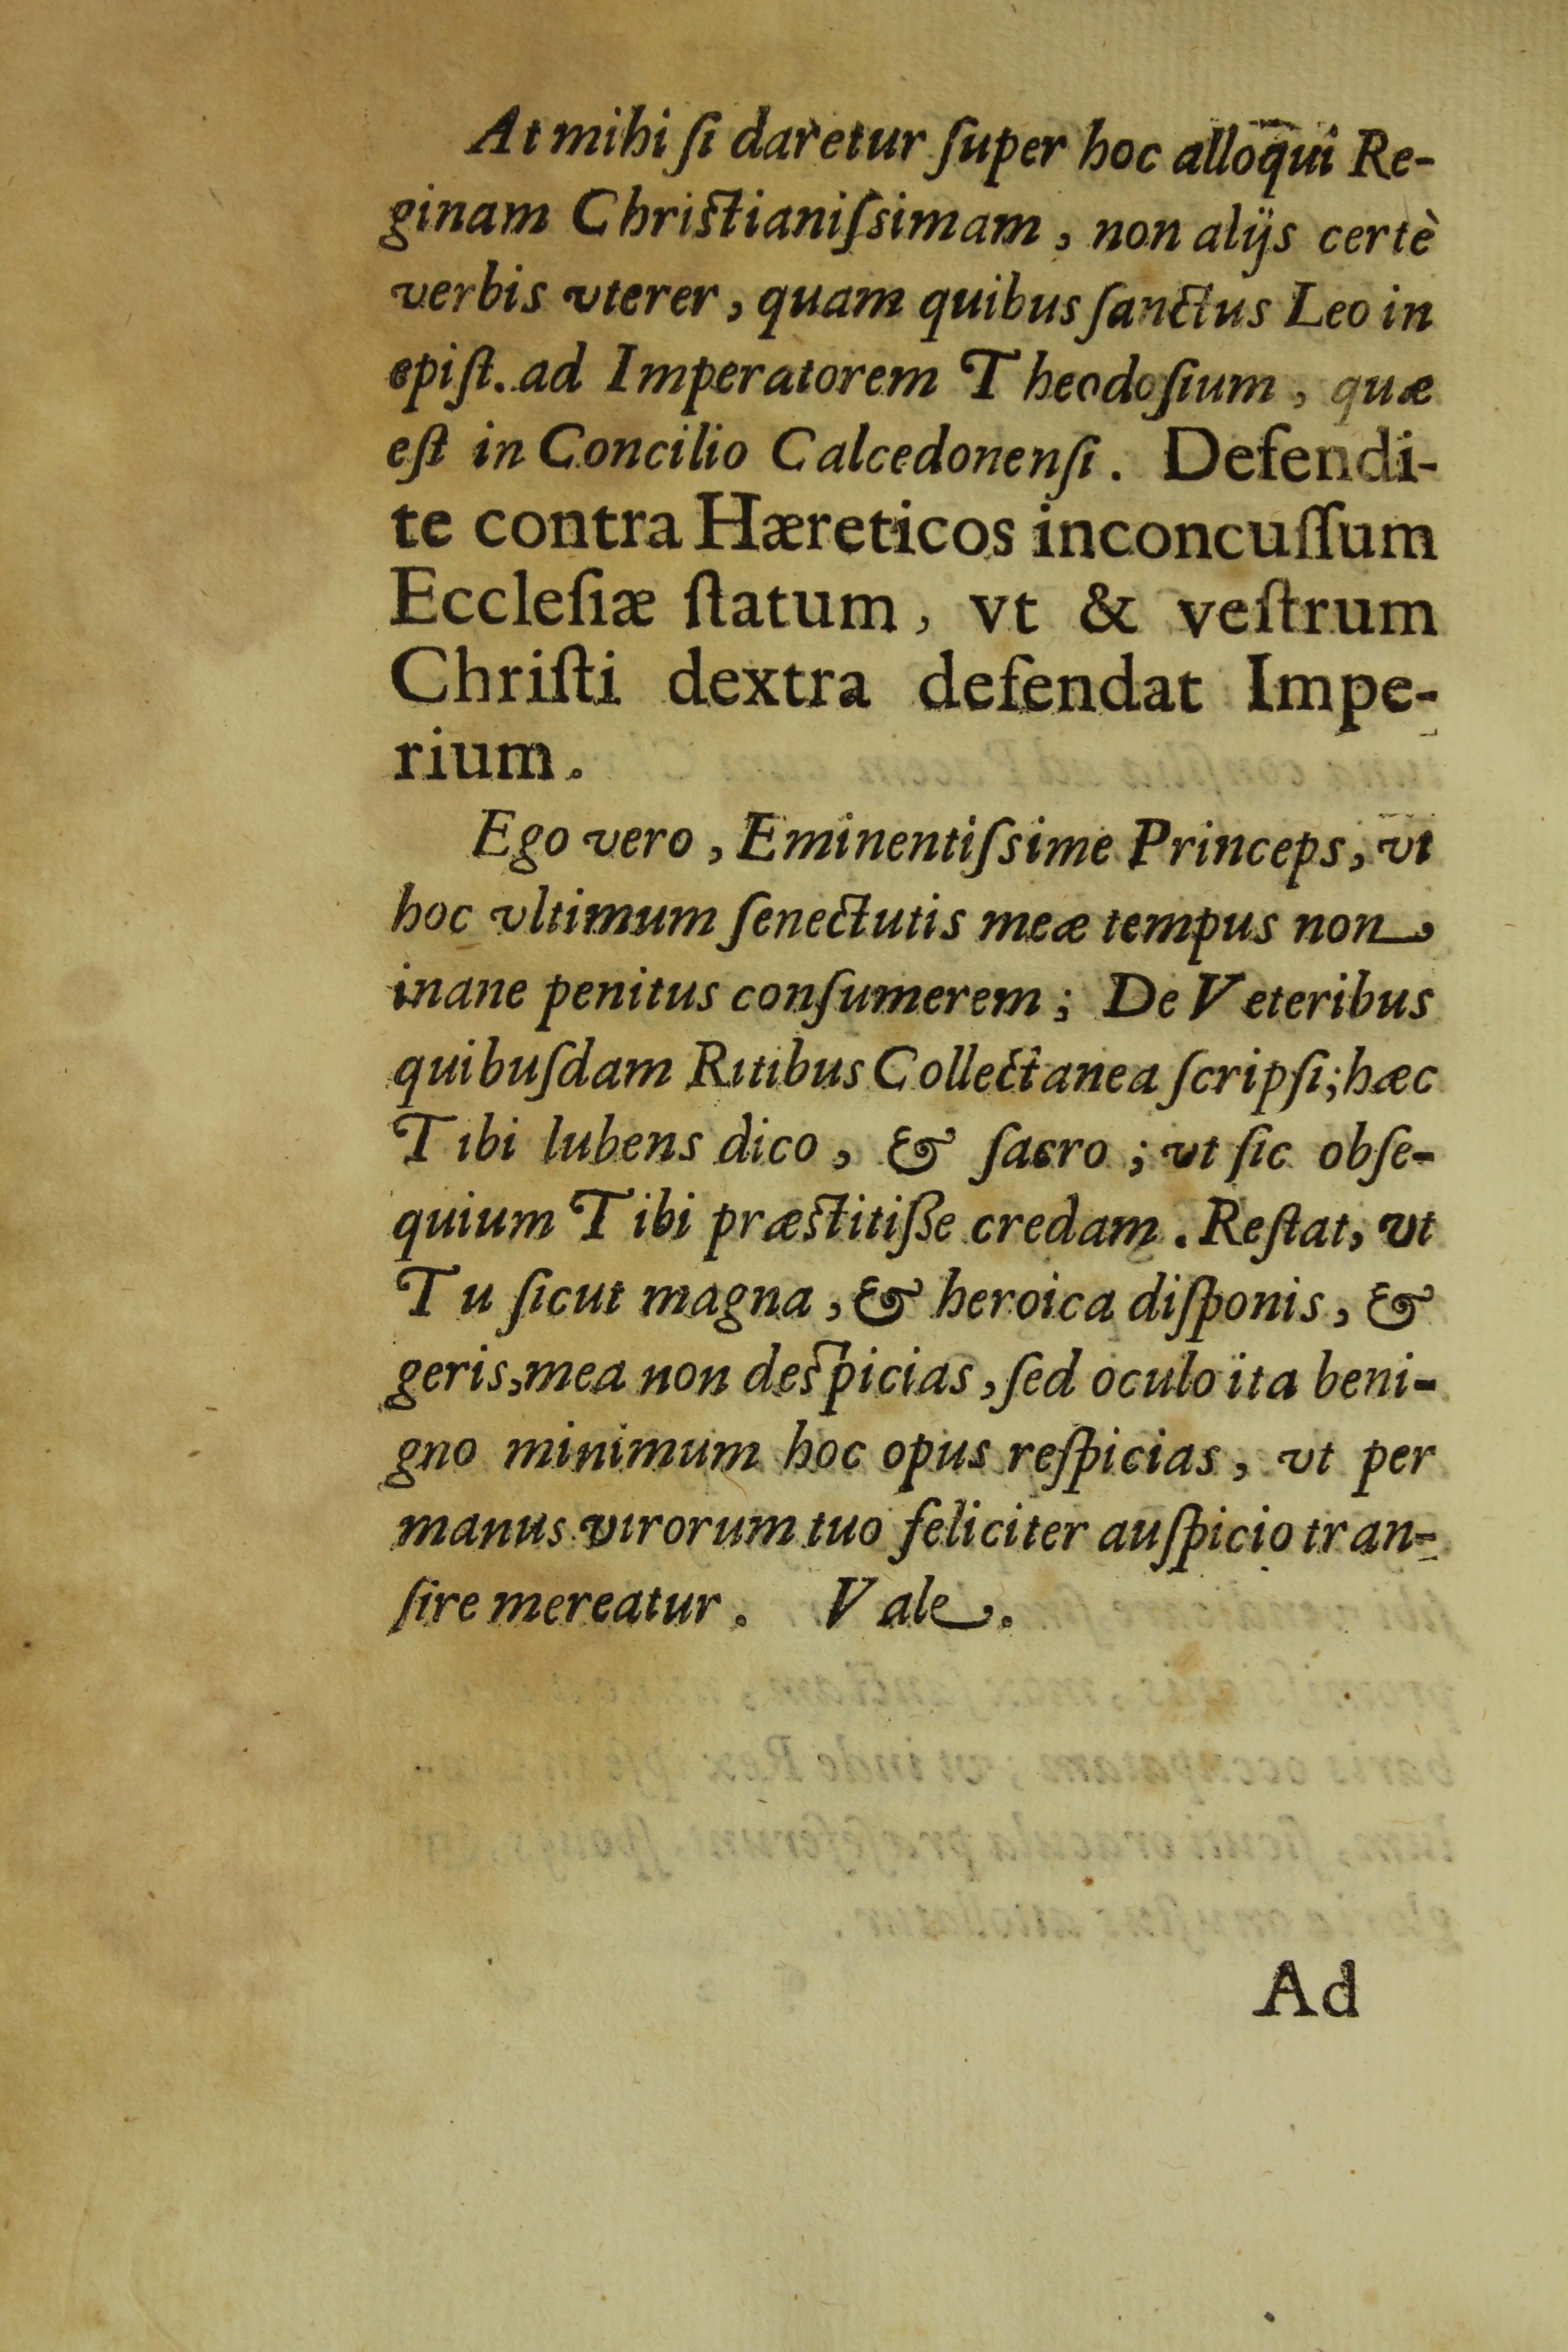 At mihi ſi daretur ſuper hoc alloqui Re-
ginam Chriſtianiſsimam, non alijs certè
verbis vterer, quam quibus ſanctus Leo in
epiſt. ad Imperatorem Theodoſium, quæ
eſt in Concilio Calcedonenſi. Defendi-
te contra Hæreticos inconcuſſum
Eccleſiæ ſtatum, vt & veſtrum
Chriſti dextra defendat Impe-
rium.
Ego vero, Eminentiſsime Princeps, vt
hoc vltimum ſenectutis meæ tempus non
inane penitus conſumerem; De Veteribus
quibuſdam Ritibus Collectanea ſcripſi; hæc
Tibi lubens dico, & ſacro; vt ſic obſe-
quium Tibi præſtitiſſe credam. Reſtat, vt
Tu ſicut magna, & heroica diſponis, &
geris, mea non deſpicias, ſed oculo ita beni-
gno minimum hoc opus reſpicias, vt per
manus virorum tuo feliciter auſpicio tran-
ſire mereatur. Vale.
Ad